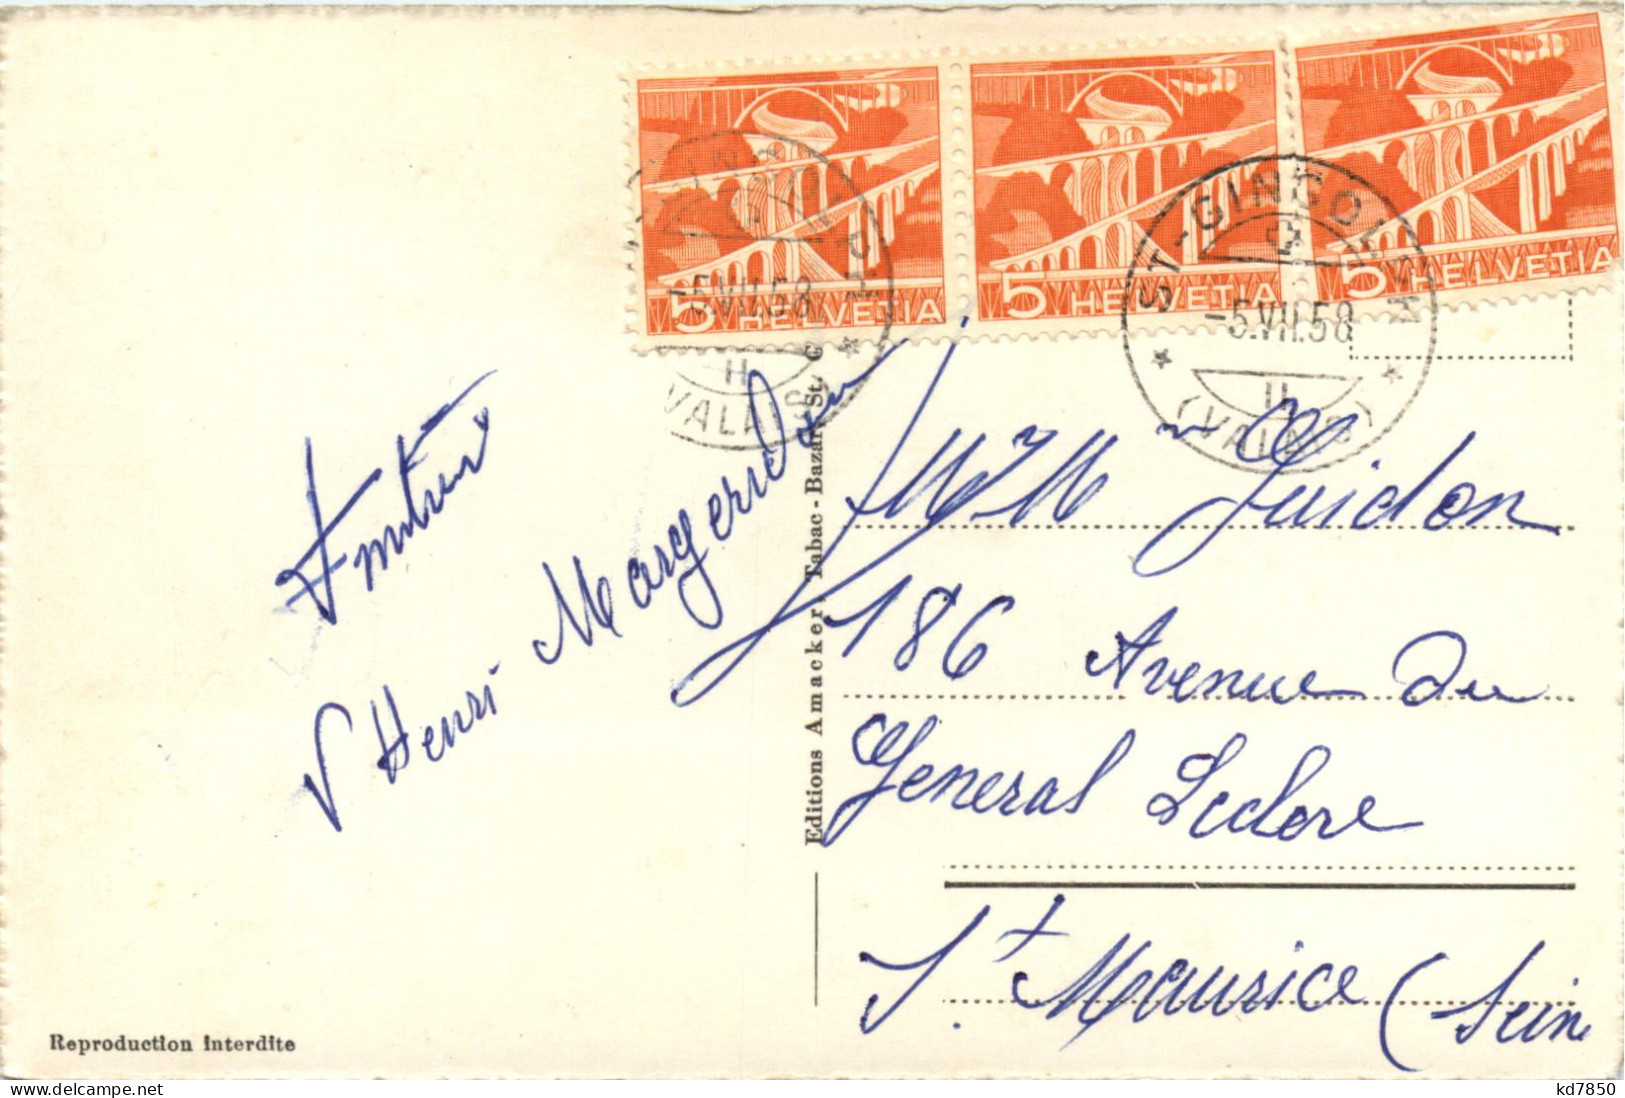 5 HELVETIA
5 HELVETIA
5 HELVETIA
-5.VII.58
II
VALAIS
ST-GINGOLPH
-5.VII.58
II
(VALAIS)
Henri Margeridon
Editions Amacker, Tabac - Bazar, St. G
M Guidon
186 Avenue Du
General Leclerc
St Maurice (Seine
Reproduction interdite
www.delcampe.net
kd7850